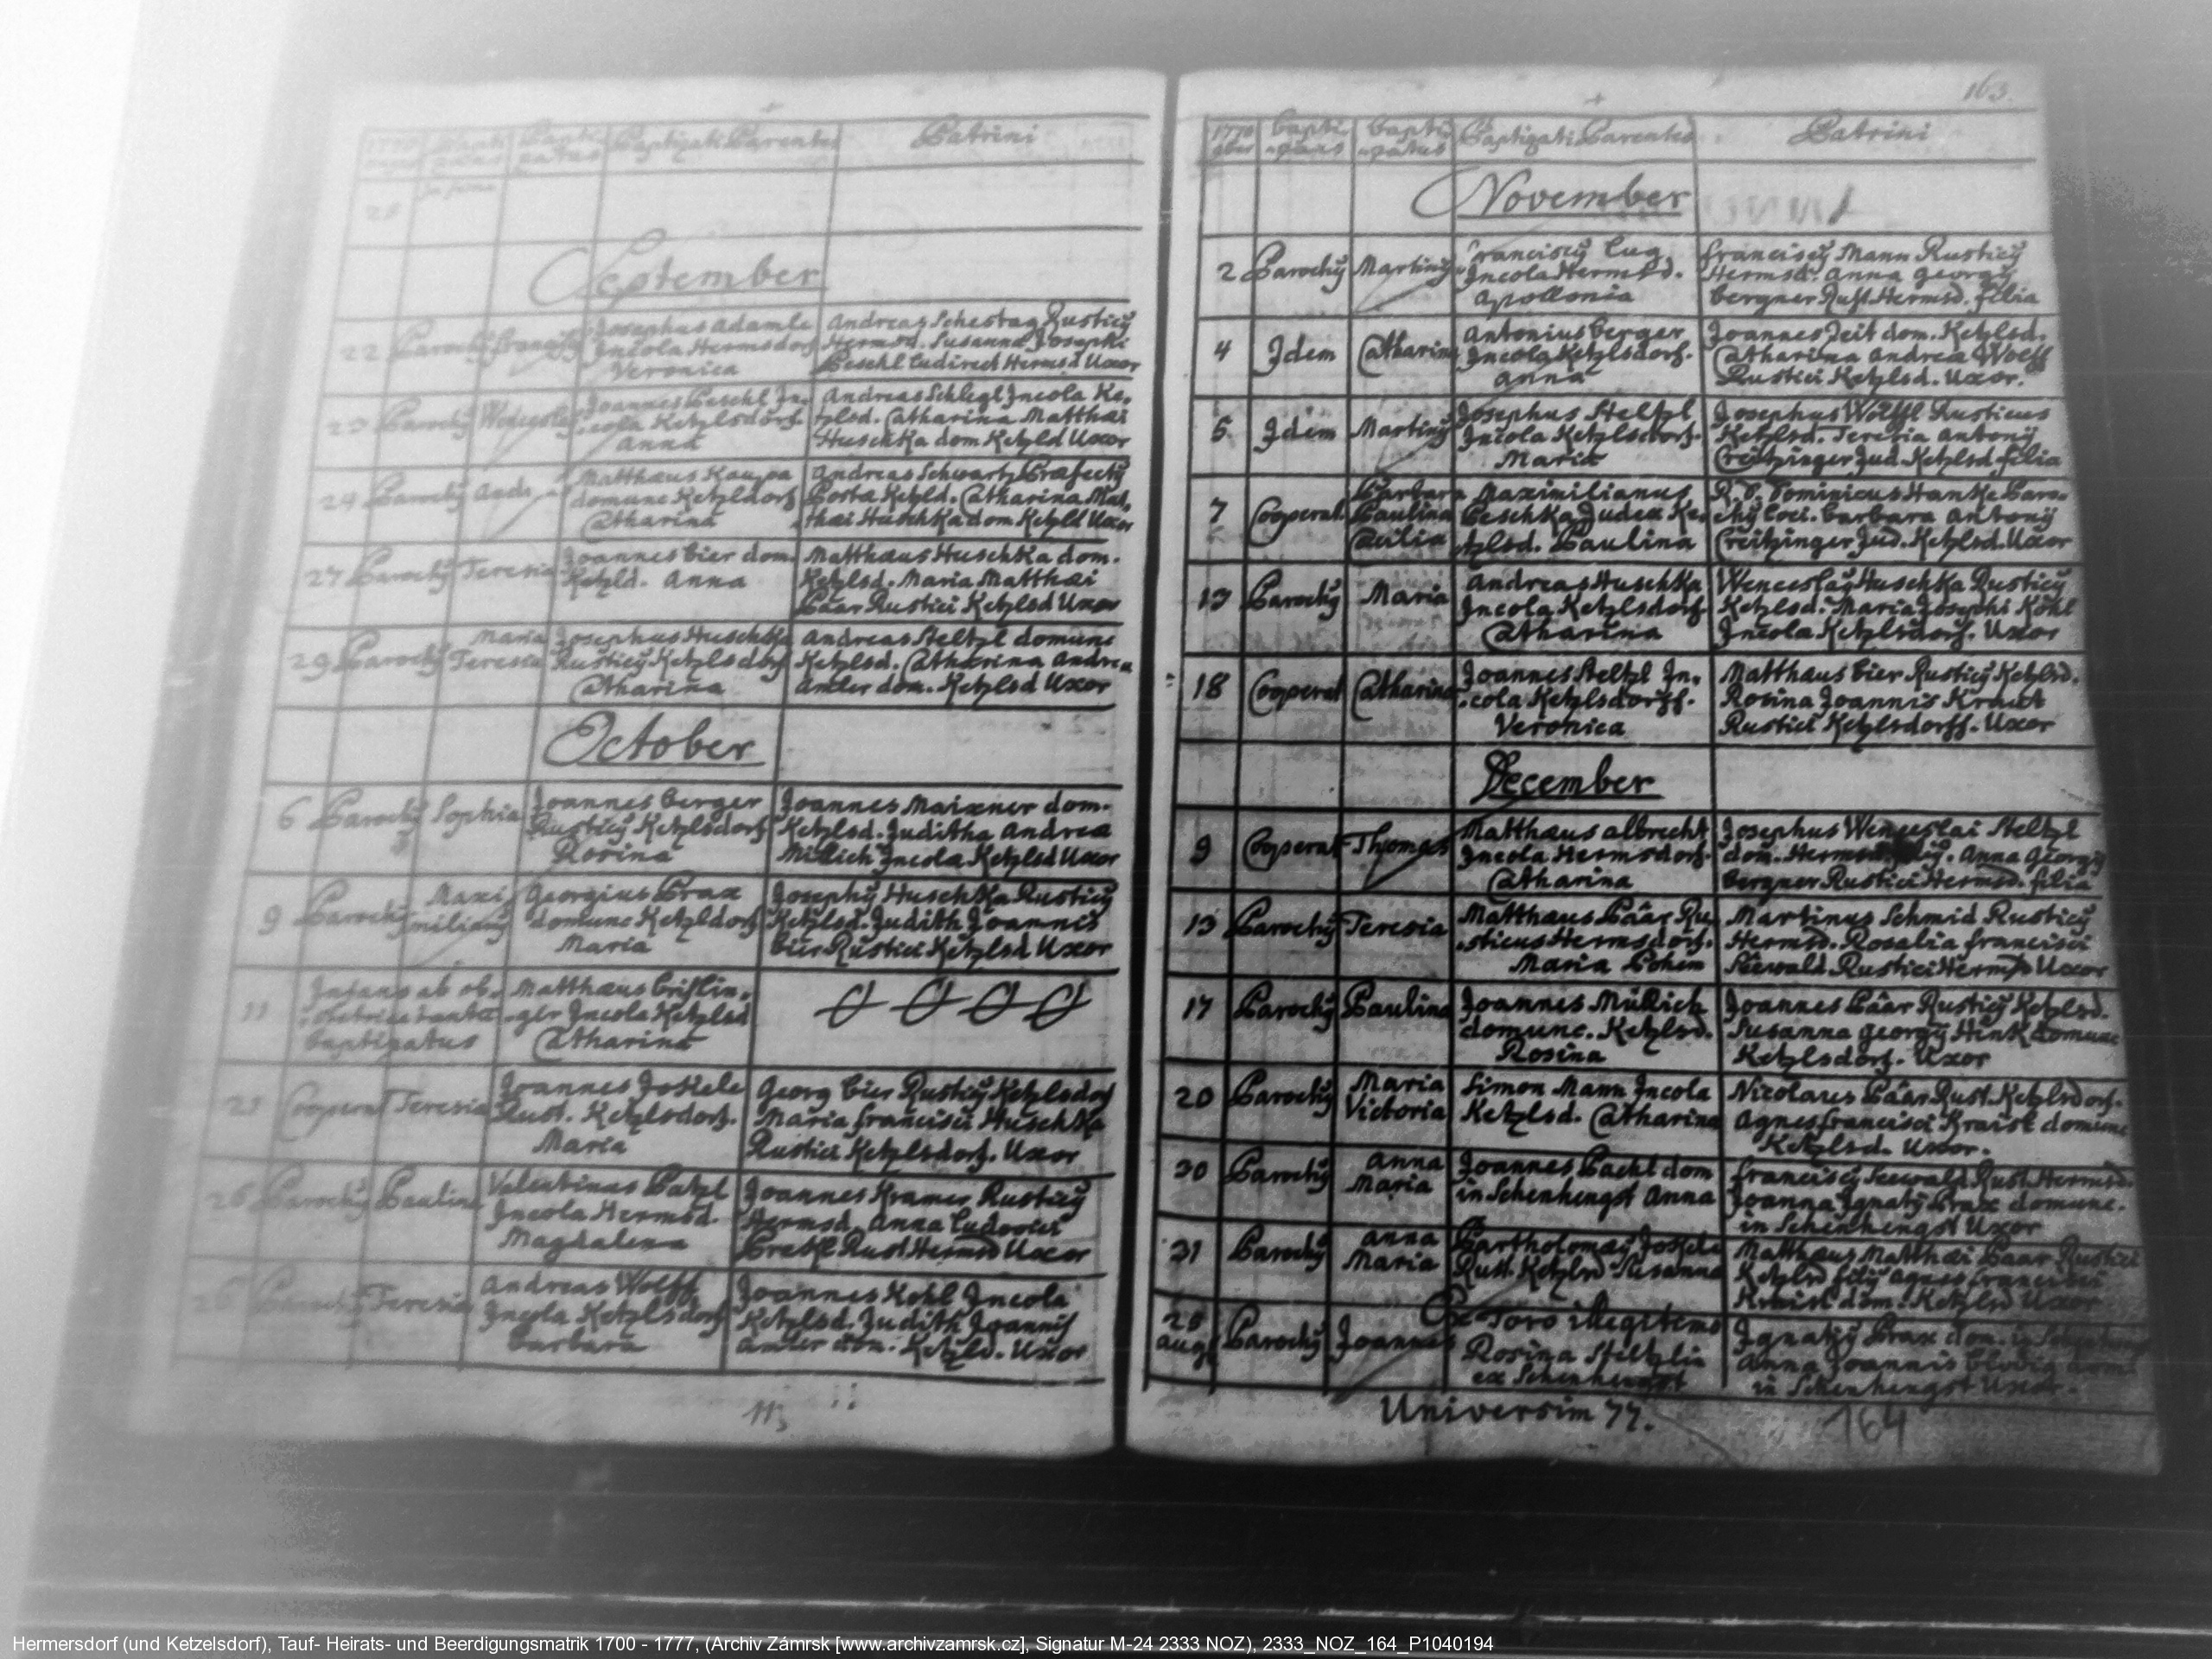 1770
Baptizati Parentes
Patrini
September
22 Parochy Francisc Josephus Adamle
Incola Hermsdorf
Veronica
Andreas Schestag Rusticy
Hermsd. Susanna Josephi
Peschl ludirect Hermsd Uxor
23 Parochy Wenceslay Joannes Peschl In,
cola Ketzlsdorf.
Anna
Andreas Schlegl Incola Ke,
tzlsd. Catharina Matthæi
Huschka dom Ketzld Uxor
24 Parochy Matthæus Kaupa
domunc Ketzldorf
Catharina
Andreas Schwartz Præfecty
Posta Ketzld. Catharina Mat,
thæi Huschka dom Ketzld Uxor
27 Parochy Teresia Joannes Bier dom.
Ketzld. Anna
Matthæus Huschka dom.
Ketzlsd. Maria Matthæi
Päar Rustici Ketzlsd Uxor
29 Parochy Maria Teresia Josephus Huschka
Rusticy Ketzlsdorf
Catharina
Andreas Steltzl domunc
Ketzlsd. Catharina Andrea
Antler dom. Ketzlsd Uxor
October
6 Parochy Sophia Joannes Berger
Rusticy Ketzlsdorf
Rosina
Joannes Maixner dom.
Ketzlsd. Juditha Andrea
Millich Incola Ketzlsd Uxor
9 Parochy Maxi,
miliany
Georgius Prax
domunc Ketzldorf
Maria
Josephy Huschka Rusticy
Ketzlsd. Judith Joannis
bier Rustici Ketzlsd Uxor
11 Infans ab ob,
stetrice tante
baptizatus
Matthæus Crislin,
ger Incola Ketzlsd
Catharina
23 Cooperat Teresia Joannes Jossele
Rust. Ketzlsdorf.
Maria
Georg bier Rusticy Ketzlsdorf
Maria Francisci Huschka
Rustici Ketzlsdorf. Uxor
26 Parochy Paulina Valentinus Patzl
Incola Hermsd.
Magdalena
Joannes Kramer Rusticy
Hermsd. Anna Ludovici
Rust Hermsd Uxor
Parochy Teresia Andreas Wolff
Incola Ketzlsdorf
Barbara
Joannes Kohl Incola
Ketzlsd. Judith Joannis
Antler dom. Ketzld. Uxor
11
163.
1770
Baptizati Parentes
Patrini
November
2 Parochy Martiny Franciscy Lug
Incola Hermsd.
Apollonia
Franciscy Mann Rusticy
Hermsd. Anna Georgy
bergner Rust Hermsd. filia
4 Idem Catharina Antonius Berger
Incola Ketzlsdorf.
Anna
Joannes Zeit dom. Ketzlsd.
Catharina Andrea Wolff
Rustici Ketzlsd. Uxor.
5 Idem Martiny Josephus Steltzl
Incola Ketzlsdorf.
Maria
Josephus Wolffl Rusticus
Ketzlsd. Teresia Antony
Creitzinger Jud. Ketzlsd filia
7 Cooperat. Barbara
Paulina
Cæcilia
Maximilianus
Peschka Judex Ke,
tzlsd. Paulina
R. D. Dominicus Hanke Paro,
chy loci. Barbara Antony
Creitzinger Jud. Ketzlsd. Uxor
13 Parochy Maria Andreas Huschka
Incola Ketzlsdorf
Catharina
Wenceslay Huschka Rusticy
Ketzlsd. Maria Josephi Kohl
Incola Ketzlsdorf. Uxor
18 Cooperat Catharina Joannes Steltzl In,
cola Ketzlsdorff.
Veronica
Matthæus bier Rusticy Ketzlsd.
Rosina Joannis Kraut
Rustici Ketzlsdorff. Uxor
December
9 Cooperat Thomas Matthæus Albrecht
Incola Hermsdorf.
Catharina
Josephus Wenceslai Steltzl
dom. Hermsd. Anna Georgy
bergner Rustici Hermsd. filia
13 Parochy Teresia Matthæus Päär Ru,
sticus Hermsdorf.
Maria Pohem
Martinus Schmid Rusticy
Hermsd. Rosalia Francisci
Seewald Rustici Hermsd Uxor
17 Parochy Paulina Joannes Müllich
domunc. Ketzlsd.
Rosina
Joannes Päar Rusticy Ketzlsd.
Susanna Georgy Henk domunc
Ketzlsdorf. Uxor
20 Parochy Maria
Victoria
Simon Mann Incola
Ketzlsd. Catharina
Nicolaus Päar Rust. Ketzlsdorf.
Agnes Francisci Kraisl domunc
Ketzlsd. Uxor.
30 Parochy Anna
Maria
Joannes Packl dom
in Schenhengst Anna
Franciscy Seewald Rust. Hermsd.
Joanna Ignaty Prax domunc.
in Schenhengst Uxor
31 Parochy Anna
Maria
Bartholomæy Jossele
Rust. Ketzlsd Susanna
Matthæus Matthæi Päar Rustici
Ketzlsd fily Agnes Francisci
Kraisl dom. Ketzlsd Uxor
28
Aug Parochy Joannes Ex Toro illegitemo
Rosina Steltzlin
ex Schenhengst
Ignatzy Prax dom. in
Anna Joannis
in Schenhengst Uxor.
Universim 77.
164
Hermersdorf (und Ketzelsdorf), Tauf- Heirats- und Beerdigungsmatrik 1700 - 1777, (Archiv Zámrsk [www.archivzamrsk.cz], Signatur M-24 2333 NOZ), 2333_NOZ_164_P1040194